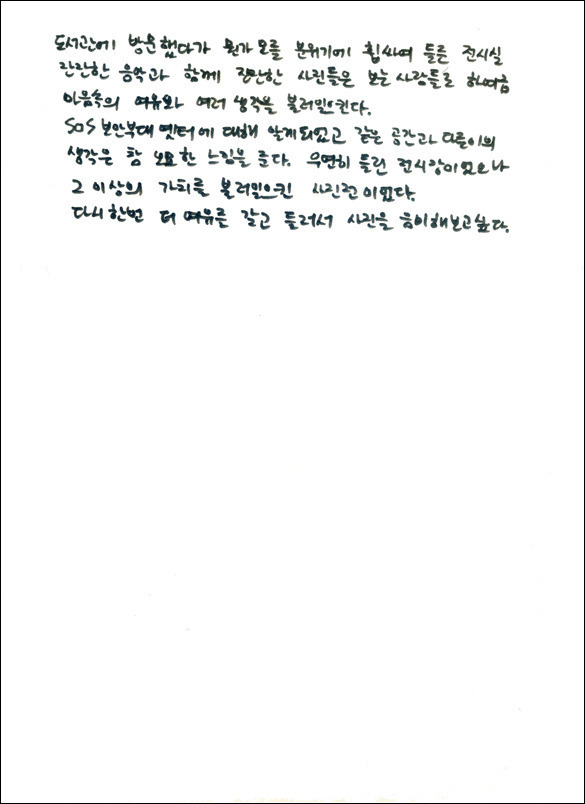 도서관에 방문했다가 뭔가 모를 분위기에 휩싸여 들른 전시실
잔잔한 음악과 함께 잔잔한 사진들은 보는 사람들로 하여금
마음속의 여유와 여러 생각을 불러일으킨다.
505보안부대 옛터에 대해 알게되었고 같은 공간과 다른이의
생각은 참 오묘한 느낌을 준다. 우연히 들린 전시장이었으나
그 이상의 가치를 불러일으킨 사진전이었다.
다시한번 더 여유를 갖고 들러서 사진을 음미해보고싶다.